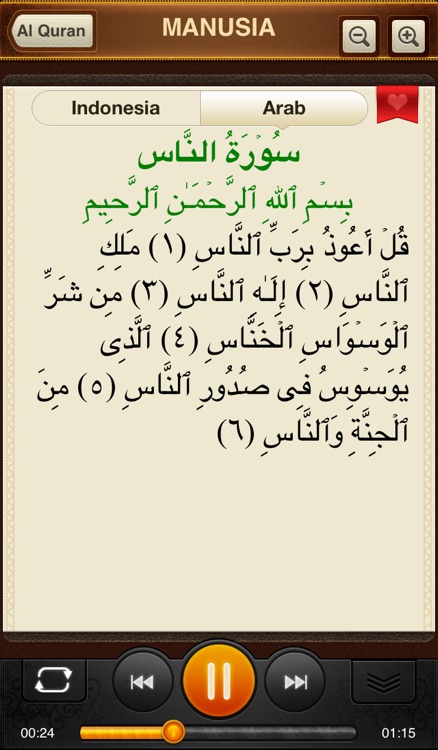 Al Quran
MANUSIA
Indonesia
Arab
سُوۡرَةُ النَّاس
بِسۡمِ ٱللهِ ٱلرَّحۡمَـٰنِ ٱلرَّحِيمِ
قُلۡ أَعُوذُ بِرَبِّ ٱلنَّاسِ (١) مَلِكِ
ٱلنَّاسِ (٢) إِلَـٰهِ ٱلنَّاسِ (٣) مِن شَرِّ
ٱلۡوَسۡوَاسِ ٱلۡخَنَّاسِ (٤) ٱلَّذِى
يُوَسۡوِسُ فِى صُدُورِ ٱلنَّاسِ (٥) مِنَ
ٱلۡجِنَّةِ وَٱلنَّاسِ (٦)
00:24
01:15